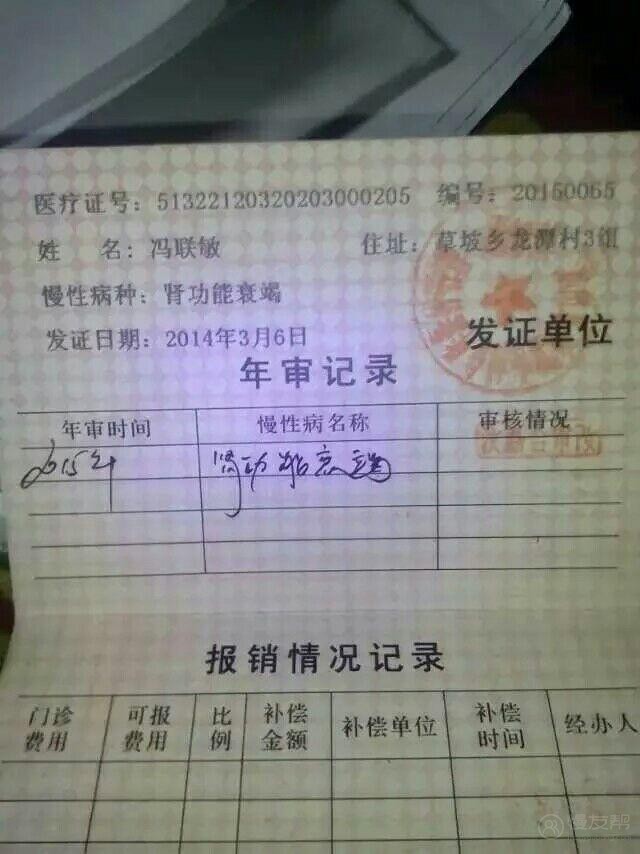 医疗证号：513221203202030​00205 编号：20150065
姓 名：冯联敏 住址：草坡乡龙潭村3组
慢性病种：肾功能衰竭
发证日期：2014年3月6日 发证单位
年审记录
年审时间 慢性病名称 审核情况
2015年 肾功能衰竭
报销情况记录
门诊费用 可报费用 比例 补偿金额 补偿单位 补偿时间 经办人
慢友帮